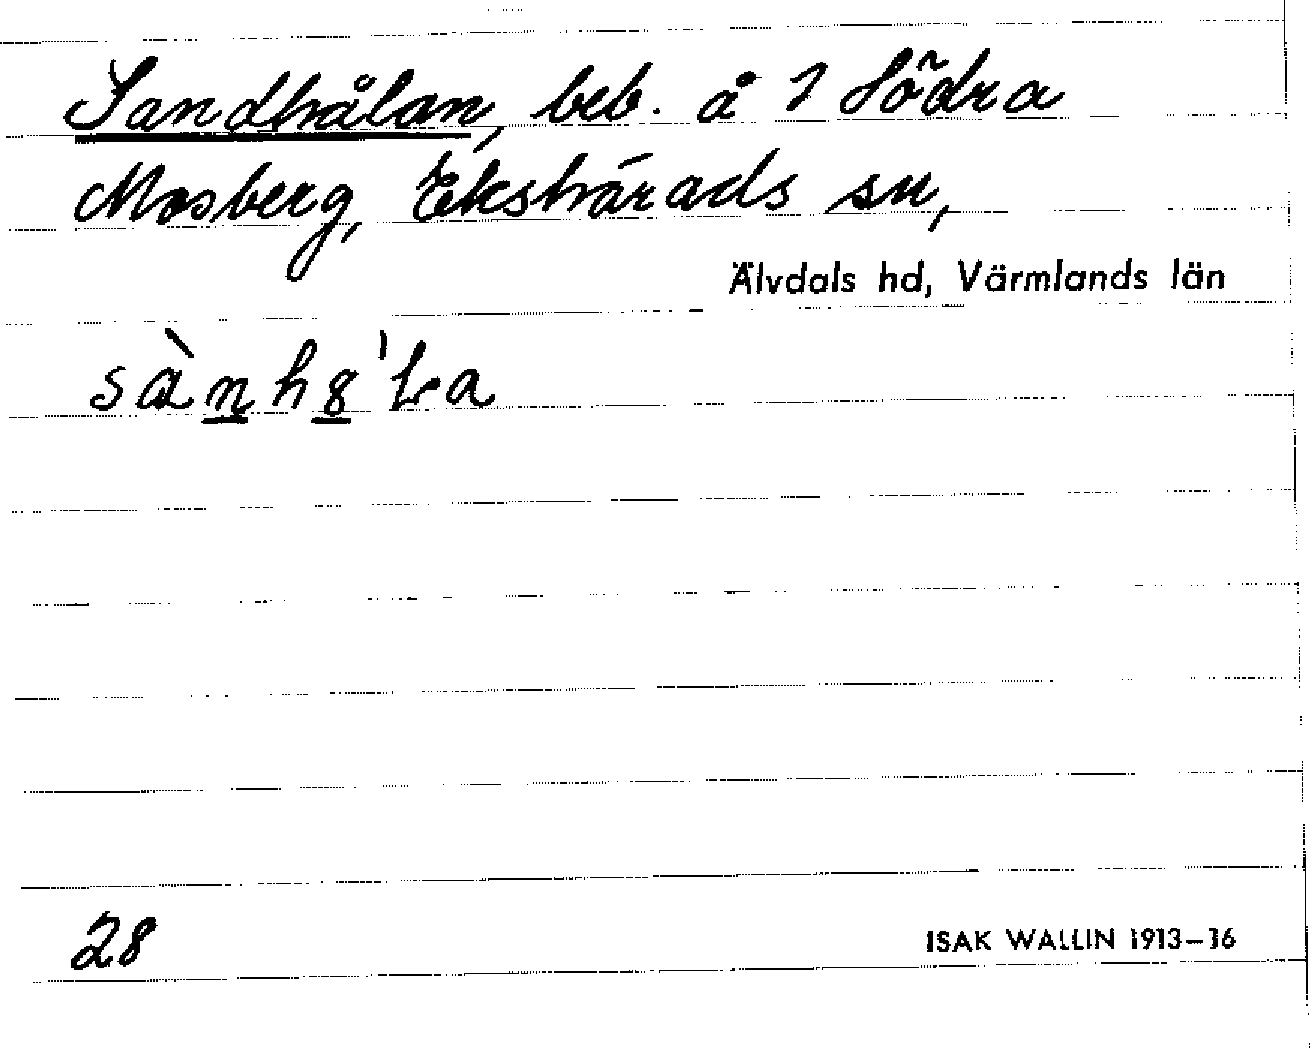 Sandhålan, beb. å 1 Södra
Mosberg, Ekshärads sn,
Älvdals hd, Värmlands län
sành8'La
28
ISAK WALLIN 1913–16